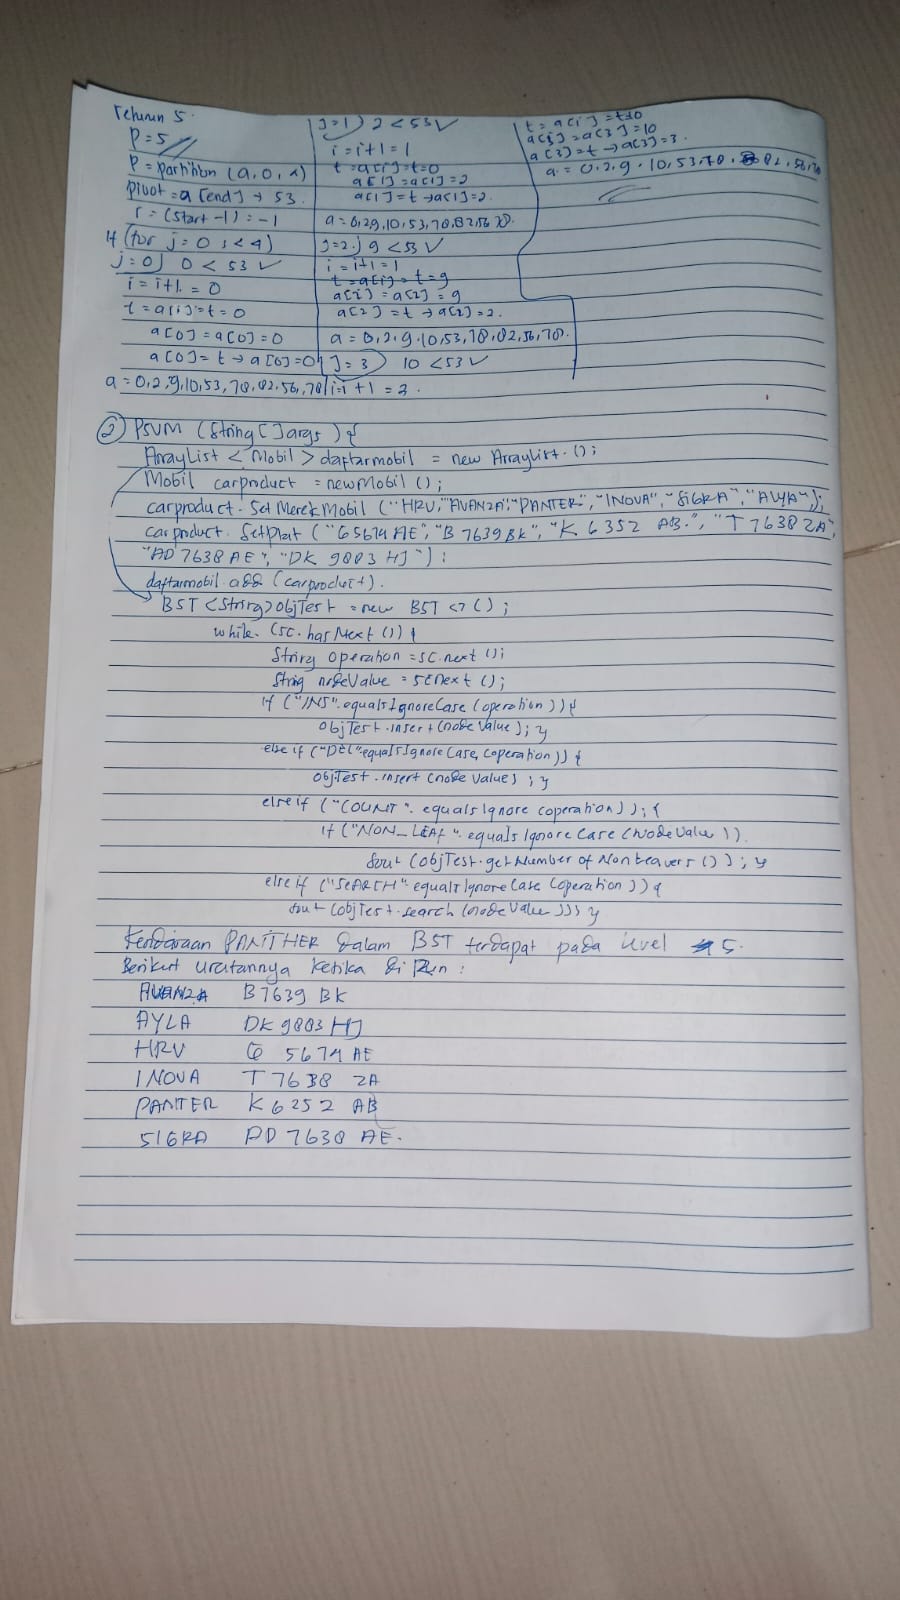 return 5.
P = 5
P = partition (a, 0, 4)
pivot = a [end] → 53.
i = (start -1) = -1
(for j = 0 ; < 4)
j = 0) 0 < 53 ✓
i = i+1 = 0
t = a[i] = t = 0
a[0] = a[0] = 0
a[0] = t → a[0] = 0
a = 0,2,9,10,53,78,82,56,78
j = 1) 2 < 53 ✓
i = i+1 = 1
t = a[i] = t = 0
a[1] = a[1] = 2
a[1] = t → a[1] = 2.
a = 0,2,9,10,53,78,82,56,78.
j = 2.) 9 < 53 ✓
i = i+1 = 1
t = a[i] = t = 9
a[i] = a[2] = 9
a[2] = t → a[2] = 2.
a = 0,2,9,10,53,78,82,56,78.
j = 3) 10 < 53 ✓
i = i + 1 = 3.
t = a[i] = t = 10
a[i] = a[3] = 10
a[3] = t → a[3] = 3.
a = 0,2,9,10,53,78, 82,56,78
② PSVM (String [] args ) {
ArrayList < Mobil > daftarmobil = new ArrayList ();
Mobil carproduct = new Mobil ();
carproduct. SetMerekMobil ("HRV","AVANZA","PANTER","INOVA","SIGRA","AYLA");
carproduct. Setplat ("G5674 AE","B 7639 BK","K 6352 AB.","T 7638 ZA",
"AD 7638 AE","DK 9883 HJ");
daftarmobil. add (carproduct).
BST <String> objTest = new BST <> ();
while. (sc. hasNext ()) {
String operation = sc. next ();
String nodeValue = sc next ();
if ("INS". equalsIgnoreCase (operation)) {
objTest. insert (node value); }
else if ("DEL" equalsIgnore Case, (operation)) {
objTest. insert (node value) ; }
else if ("COUNT". equals Ignore (operation)); {
if ("NON_LEAF". equals Ignore Case (NodeValue)).
Sout (objTest. get Number of Non Leavers ()); }
else if ("SEARCH". equalsIgnoreCase (operation)) {
sout (objTest. search (node Value))) }
Kendaraan PANTHER dalam BST terdapat pada level 5.
Berikut urutannya ketika di Run :
AVANZA B7639 BK
AYLA DK 9883 HJ
HRV G 5674 AE
INOVA T 7638 ZA
PANTER K 6252 AB
SIGRA AD 7638 AE.